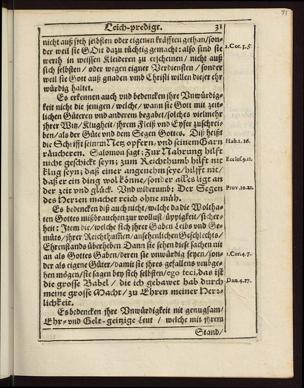 Leich-predigt. 31
nicht auß jhr selbsten oder eigenen kräfften gethan/son-
der weil sie GOtt dazu tüchtig gemacht: also sind sie
werth in weissen Kleideren zu erscheinen / nicht auß
sich selbsten / oder wegen eigner Verdiensten / sonder
weil sie Gott auß gnaden vnd Christi willen dieser ehr
würdig haltet.
2.Cor.3,5.
Es erkennen auch vnd bedencken ihre Vnwürdig-
keit nicht die jenigen / welche / wann sie Gott mit zeit-
lichen Güteren vnd anderem begabet/solches vielmehr
ihrer Witz/Klugheit / ihrem Fleiß vnd Eyfer zuschrei-
ben/als der Güte vnd dem Segen Gottes. Diß heißt
die Schrifft seinem Netz opferen, vnd seinem Garn
räucheren. Salomon sagt; Zur Nahrung hilft
nicht geschickt seyn; zum Reichthumb hilft nit
klug seyn; daß einer angenehm seye/hilfft nit/
daß er ein ding wol könne/sonder alles ligt an
der zeit vnd glück. Vnd widerumb: Der Segen
des Herren machet reich ohne müh.
Hab.1.16.
Eccles.9.11.
Prov.10.22.
Es bedencken diß auch nicht/welche da die Woltha-
ten Gottes mißbrauchen zur wollust/üppigkeit/sicher-
heit: Item die/welche sich ihrer Gaben Leibs vnd Ge-
müts/ihrer Reichthumben/ansehenlichen Geschlechts/
Ehrenstands überheben Dann sie sehen diese sachen nit
an als Gottes Gaben/deren sie vnwürdig seyen/son-
der als eigene Güter/damit sie ihres gefallens vmbge-
hen mögen/sie sagen bey sich selbsten/ego feci, das ist
die grosse Babel / die ich gebawet hab durch
meine grosse Macht/ zu Ehren meiner Herr-
lichkeit.
1.Cor.4.7.
Dan.4.27.
Es bedencken ihre Vnwürdigkeit nit genugsam/
Ehr- vnd Gelt-geitzige Leut / welche mit ihrem
Stand/